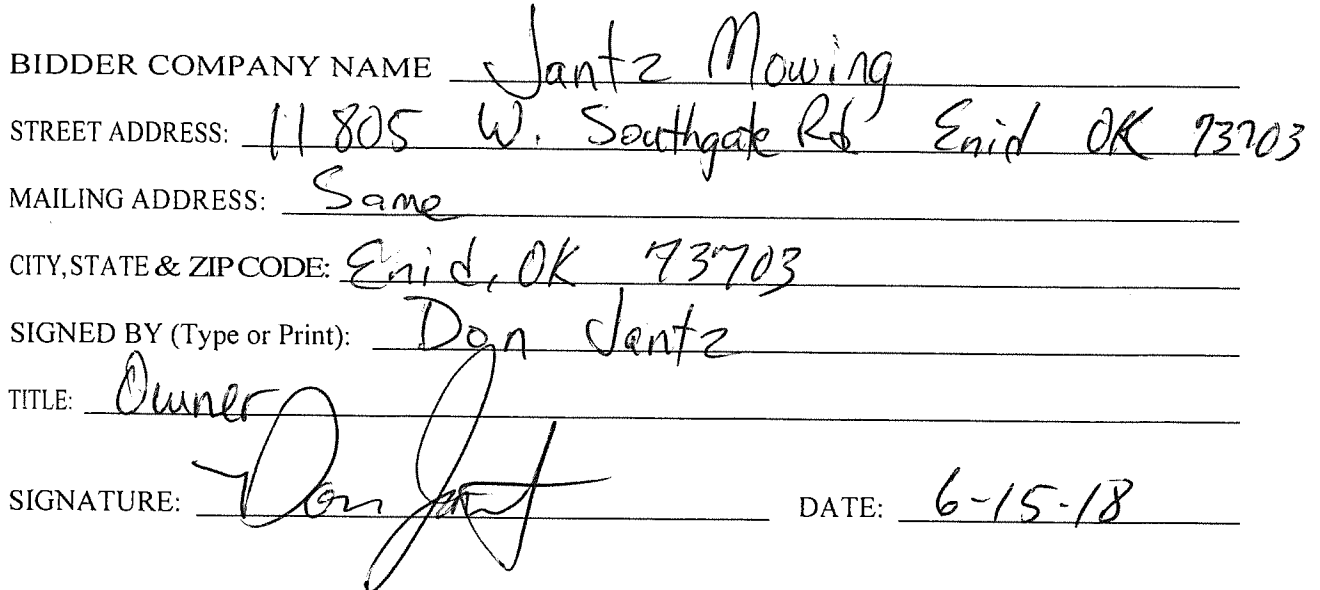 BIDDER COMPANY NAME Jantz Mowing
STREET ADDRESS: 11805 W. Southgate Rd Enid OK 73703
MAILING ADDRESS: Same
CITY, STATE & ZIP CODE: Enid, OK 73703
SIGNED BY (Type or Print): Don Jantz
TITLE: Owner
SIGNATURE: Don Jantz DATE: 6-15-18